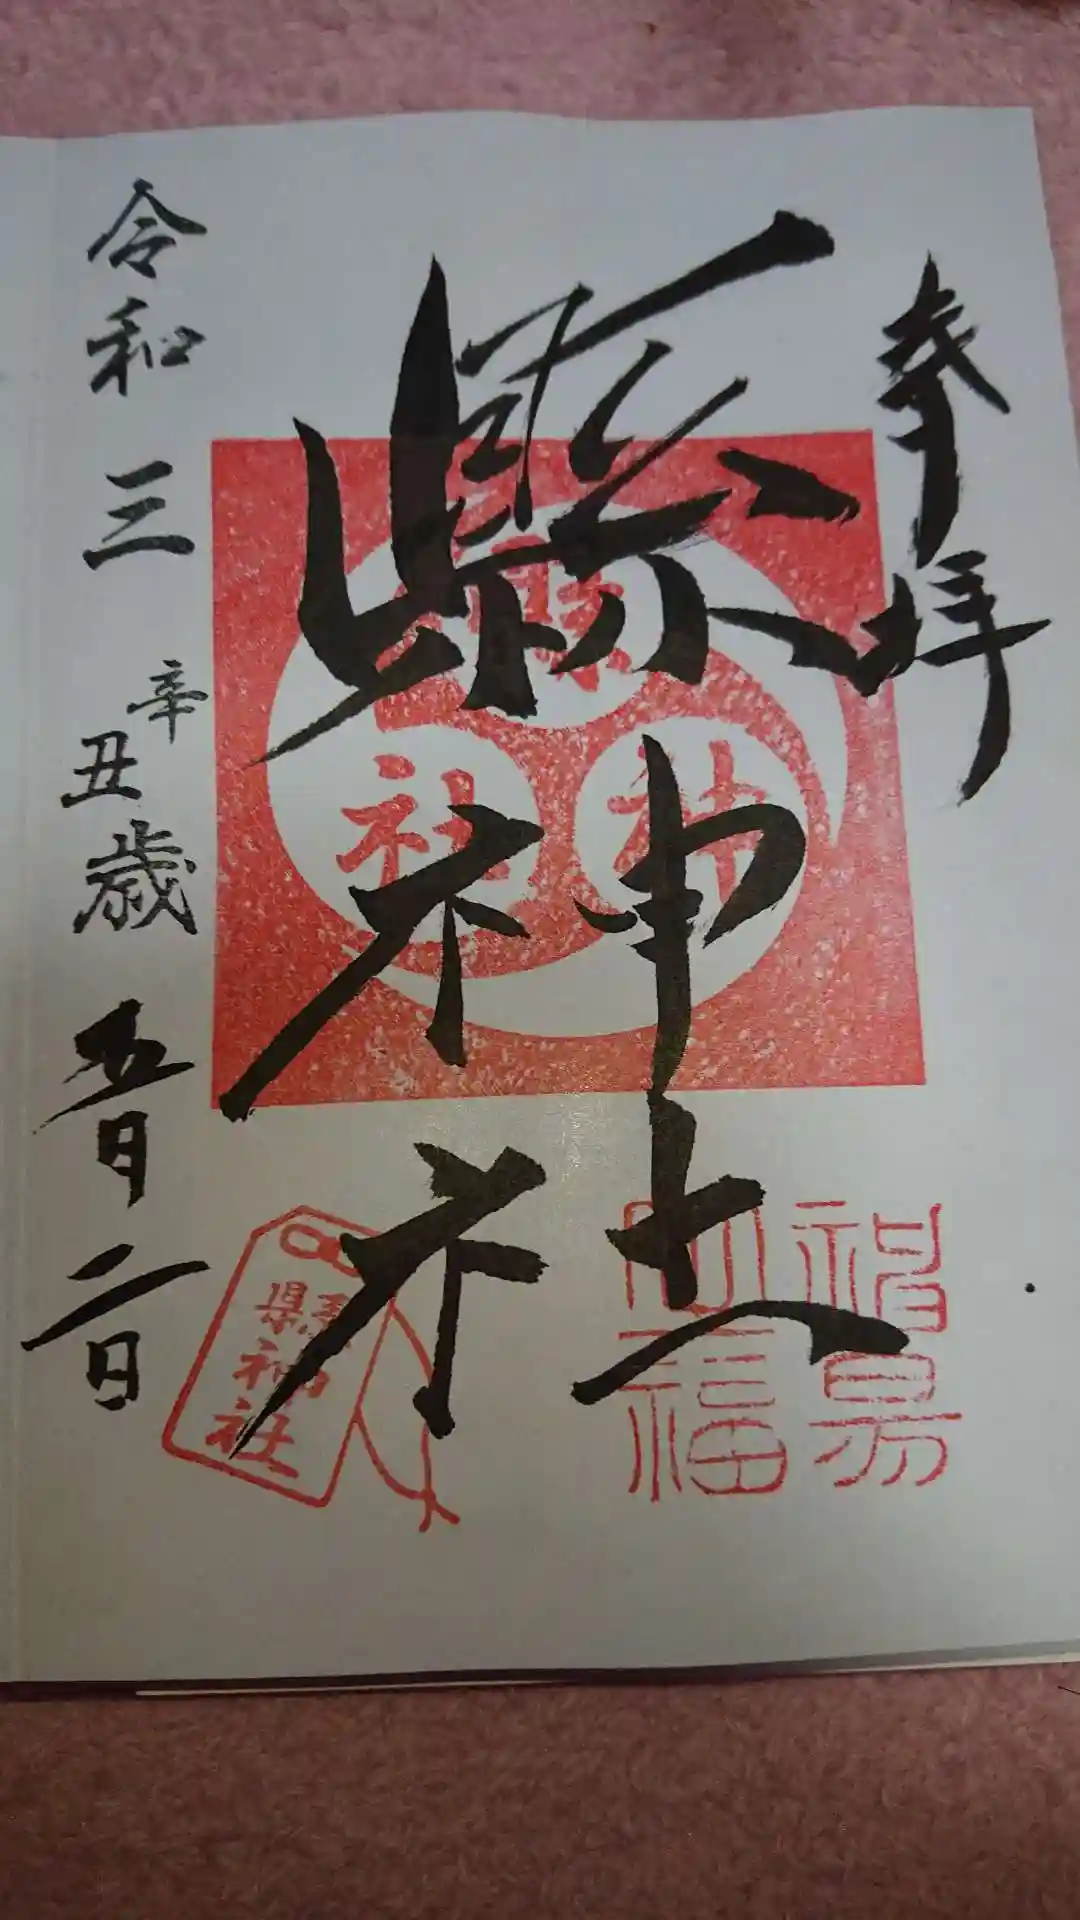 奉拝
縣神社
縣神社
令和三辛丑歳五月二日
縣神社